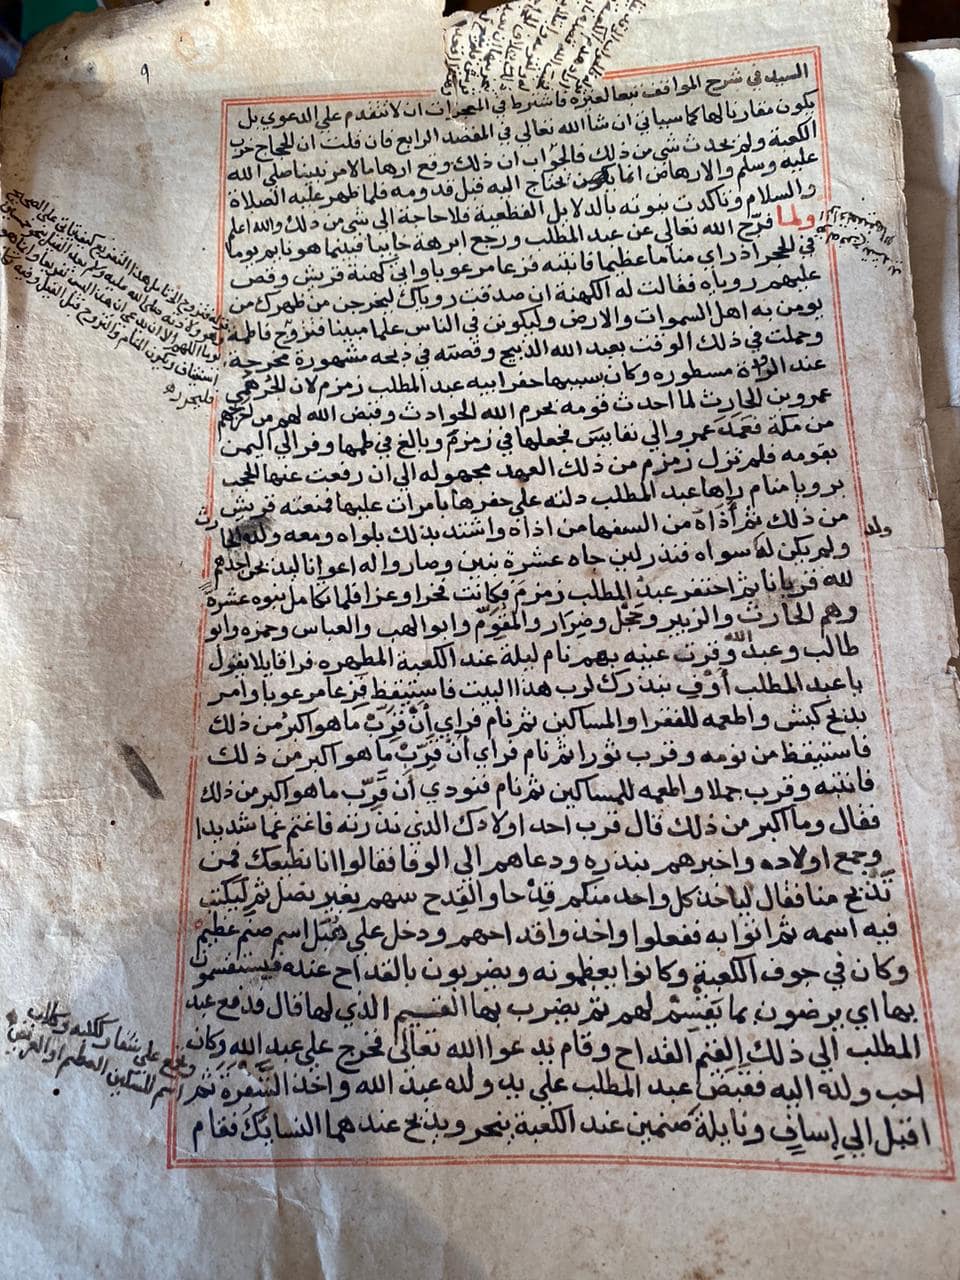 ٩
السيد في شرح المواقف تبعا لغيره فاشترط في المعجزات ان لا تتقدم علي الدعوي بل
يكون مقارنا لها كما سياتي ان شا الله تعالي في المقصد الرابع فان قلت ان الحجاج خرب
الكعبة ولم يحدث شي من ذلك فالجواب ان ذلك وقع ارهاصا لامر نبينا صلي الله
عليه وسلم والارهاص انما يحتاج اليه قبل قدومه فلما ظهر عليه الصلاة
والسلام وتاكدت نبوته بالدلايل القطعية فلا حاجة الي شي من ذلك والله اعلم
ولما فرج الله تعالي عن عبد المطلب ورجع ابرهة خايبا فبينما هو نايم يوما
في الحجر اذ راي مناما عظيما فانتبه فزعا مرعوبا واتي كهنة قريش وقص
عليهم روياه فقالت له الكهنة ان صدقت روياك ليخرجن من ظهرك من
يومن به اهل السموات والارض وليكونن في الناس علما مبينا فتزوج فاطمة
وحملت في ذلك الوقت بعبد الله الذبيح وقصته في ذبحه مشهورة مخرجة
عند الرواة مسطوره وكان سببها حفر ابيه عبد المطلب زمزم لان الجرهمي
عمرو بن الحارث لما احدث قومه بحرم الله الحوادث وقيض الله لهم من اخرجهم
من مكة فعمد عمرو الي نفايس فجعلها في زمزم وبالغ في طمها وفر الي اليمن
بقومه فلم تزل زمزم من ذلك العهد مجهوله الي ان رفعت عنها الحجب
برويا منام راها عبد المطلب دلته علي حفرها بامرات عليها فمنعته قريش
من ذلك ثم أذاه من السفها من اذاه واشتد بذلك بلواه ومعه ولده الحارث
ولم يكن له سواه فنذر لين جاه عشرة بنين وصاروا له اعوانا ليذبحن احدهم
لله قربانا ثم احتفر عبد المطلب زمزم فكانت فخرا وعزا فلما تكامل بنوه عشرة
وهم الحارث والزبير وحجل وضرار والمقوم وابو لهب والعباس وحمزه وابو
طالب وعبد الله وقرت عينه بهم نام ليلة عند الكعبة المطهره فرا قايلا يقول
يا عبد المطلب أوف بنذرك لرب هذا البيت فاستيقظ فزعا مرعوبا وامر
بذبح كبش واطعمه للفقرا والمساكين ثم نام فراي أن قرب ما هو اكبر من ذلك
فاستيقظ من نومه وقرب ثورا ثم نام فراي أن قرب ما هو اكبر من ذلك
فانتبه وقرب جملا واطعمه للمساكين ثم نام فنودي أن قرب ما هو اكبر من ذلك
فقال وما اكبر من ذلك قال قرب احد اولادك الذي نذرته فاغتم غما شديدا
وجمع اولاده واخبرهم بنذره ودعاهم الي الوفا فقالوا انا نطيعك فمن
تذبح منا فقال لياخذ كل واحد منكم قدحا والقدح سهم بغير نصل ثم ليكتب
فيه اسمه ثم اتوا به ففعلوا واخذ واقداحهم ودخل علي هبل اسم صنم عظيم
وكان في جوف الكعبة وكانوا يعظمونه ويضربون بالقداح عنده فيستقسمون
بها اي يرضون بما يقسم لهم ثم يضرب بها القيم الذي لها قال فدفع عبد
المطلب الي ذلك القيم القداح وقام يدعوا الله تعالي فخرج علي عبد الله وكان
احب ولده اليه فقبض عبد المطلب علي يد ولده عبد الله واخذ الشفرة ثم
اقبل الي إساف ونايلة صنمين عند الكعبة ينحر ويذبح عندهما النسايك فقام
ولد
وتجمع علي شفار ككلبه وكلاب
اسم للسكين العظيم او العريض